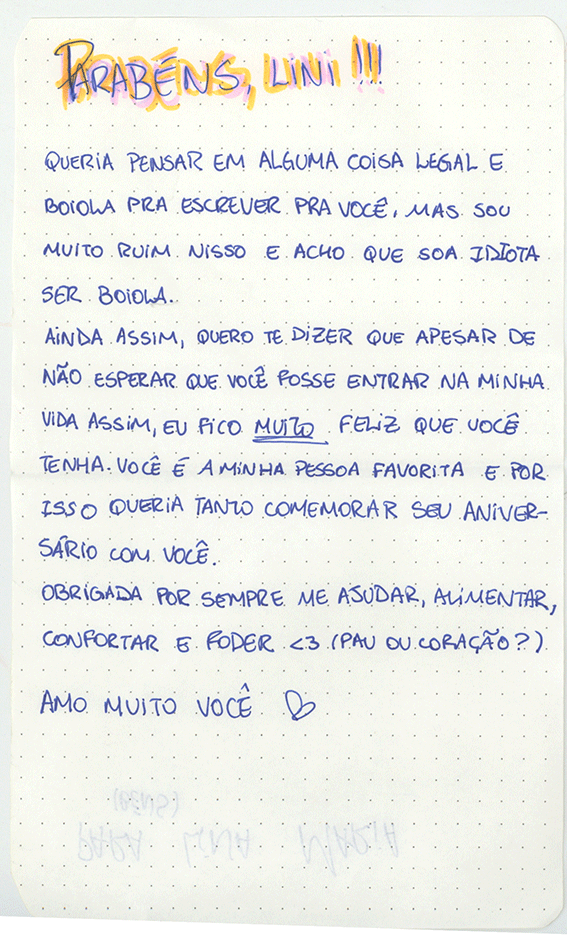 PARABÉNS, LINI !!!
QUERIA PENSAR EM ALGUMA COISA LEGAL E
BOIOLA PRA ESCREVER PRA VOCÊ, MAS SOU
MUITO RUIM NISSO E ACHO QUE SOA IDIOTA
SER BOIOLA.
AINDA ASSIM, QUERO TE DIZER QUE APESAR DE
NÃO ESPERAR QUE VOCÊ FOSSE ENTRAR NA MINHA
VIDA ASSIM, EU FICO MUITO FELIZ QUE VOCÊ
TENHA. VOCÊ É A MINHA PESSOA FAVORITA E POR
ISSO QUERIA TANTO COMEMORAR SEU ANIVER-
SÁRIO COM VOCÊ.
OBRIGADA POR SEMPRE ME AJUDAR, ALIMENTAR,
CONFORTAR E FODER <3 (PAU OU CORAÇÃO?)
AMO MUITO VOCÊ ♡